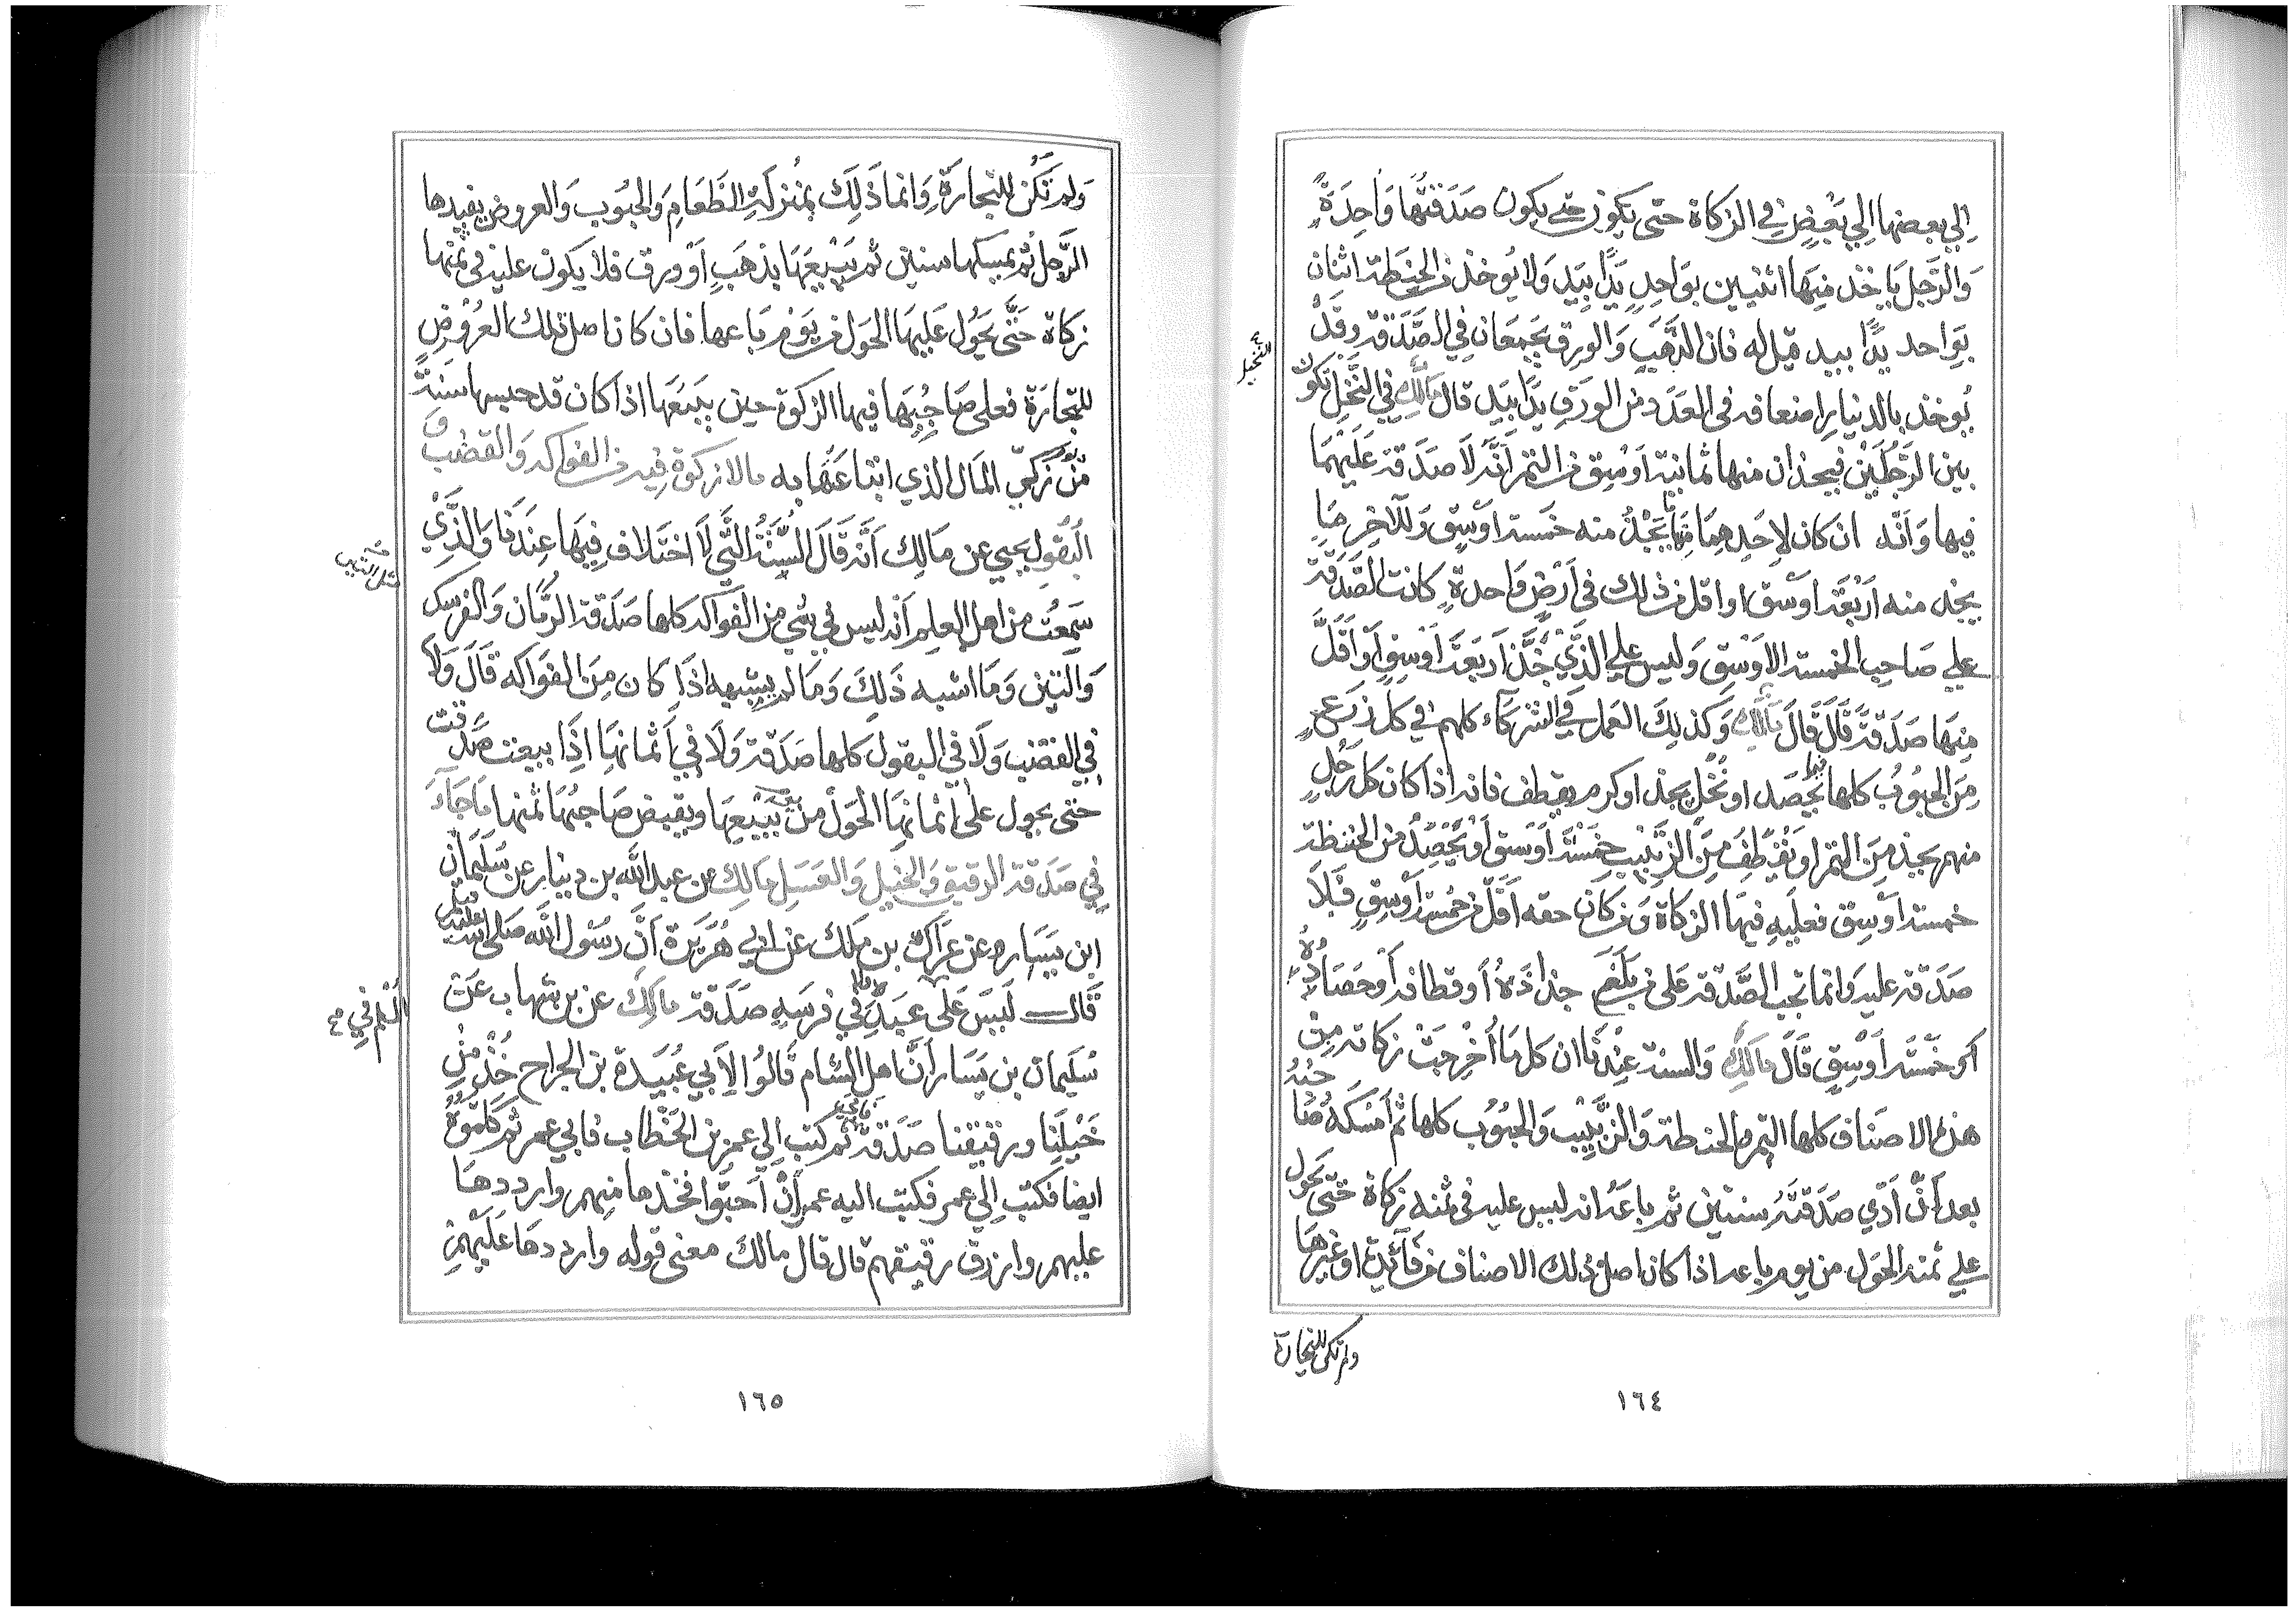 إلي بعضها إلي بَعْضٍ في الزكاة حتى يكون حتى يكون صَدَقَتُهَا وَاحِدَةً
وَالرَّجل يَاخذ مِنهَا اثنيين بوَاحِدٍ يَدًا بِيَدٍ وَلا يُوخذ من الحِنطة اثنان
بوَاحد يدًا بيد قيل له فان الذَّهَبَ وَالورق يجمعَان في الصَّدَقة وقدْ
يُوخذ بالدنيار اضعافه في العَدَد من الورَقِ يَدًا بيَدٍ قال مَالك في النَّخْل تكون
النخيل
بين الرَّجُلَيْن فيجذان منها ثمانية اوسُق من التمر اَنَّهُ لاَ صَدَقة عَلَيْهِمَا
فيها وَاَنَّه ان كان لاِحَدِهِمَا مِنهَا مَا يَجُذُّ منه خمسة اوسُقٍ وَللآخِر مَا
يجذ منه اَرْبَعَة اوسُق او اقل من ذلك في اَرْضٍ وَاحدةٍ كانت الصَّدَقة
علي صَاحِب الخمسة الاَوْسُقِ وَليس علي الذَّي جَذَّ اربَعَةَ اَوْسُقٍ اَوْ اَقَلَّ
مِنهَا صَدَقَةٌ قَالَ قَالَ مَالك وَكذلِكَ العَمل في الشركَاء كلهم في كل زَرعٍ
مِنَ الحبُوبُ كلها يُحْصَد او نخْل يجذ او كرم يقطف فانه اذا كان كل رَجُلٍ
منهم يجذ مِنَ التمر او يَقْطِفُ مِنَ الزَّبيبِ خَمْسَة اَوْسُقٍ اَوْ يَحْصُدُ من الحنطة
خمسة اَوْسُق فعلَيهِ فيهَا الزكاة وَمن كان حقه اَقلّ من خمسة اَوسُقٍ فَلاَ
صَدَقة عليه وَانما تجب الصَّدقة عَلى من بَلَغَ جذاذَهُ اَو قطافه اَوْ حَصَادُهُ
خَمْسَة اَوْسُقٍ قَالَ مالَكٌ وَالسنة عِنْدَنَا ان كل مَا اُخْرِجَتْ زكاته مِن
هذه الاصنَاف كلها التمر والحنطة وَالزَّبيب وَالحبُوب كلها ثم اَمْسَكَهُ صَاحبُهُ
بعد اَنْ اَدّي صَدَقَتَهُ سنتين ثم بَاعَهُ انه ليس عليه في ثمنه زكاة حَتّى يَحُول
علي ثمنه الحَوْل من يوم باعه اذا كان اصل ذلك الاصناف من فَائدة او غيرهَا
ولم تكن للتجارة
١٦٤
وَلم تَكُن للتجارَة وَانما ذَلِكَ بمُنزلَةِ الطَّعَامِ وَالحبُوب وَالعروض يفيدها
الرَّجلُ ثم يمسكها سنين ثم يَبيْعُهَا بذهَبٍ اَوْ ورق فلا يكون عليه في ثمنها
زكاة حَتَّى يَحُول عَليهَا الحَوْل من يَوْم بَاعها فان كان اصل تلك العُرُوض
للتجارَة فعلى صَاحِبهَا فيها الزكوة حين يبيعُهَا اذا كان قد حبسها سَنةً
من يوم زَكَّي المَال الذي ابتاعَهَا به مالا زكوة فِيه من الفواكه وَالقضب و
البُقُول يحيي عن مَالِك اَنَّه قَالَ السُّنَّةُ الَّتَى لاَ اختَلاف فِيهَا عِندَنا وَالذَّي
مثل التين
سَمِعْتُ من اهل العِلم اَنه ليس في شي من الفَواكه كلها صَدَقة الرُّمَّان وَالفرسك
وَالتين وَمَا اشبه ذَلِكَ وَمَا لم يشبهه اذَا كان مِنَ الفوَاكه قَالَ وَلاَ
في القضب وَلاَ في البقول كلها صَدَقة وَلاَ في اَثمانهَا اذَا بيعت صَدَقة
حتى يحول على اثمانهَا الحَوْل من يوم بَيْعهَا ويقبض صَاحبُهَا ثمنها مَا جَاءَ
في صَدَقة الرقيق وَالخيل وَالعَسَل مَالِك عن عبد الله بن دينار عن سُلَيمَان
ابن يَسَار عن عَرَاك بن مَلك عن ابي هُرَيْرَة اَنَّ رَسُول الله صَلى الله عليه
قال لَيسَ عَلى عَبدِهِ في فَرسَهِ صَدَقة مَالِكٌ عن بن شهاب عَن
المُسلم في
سُلَيمان بن يَسَار اَنَّ اهل الشام قَالُوا لاَبي عُبَيدة بن الجراح خُذْ مِنْ
خَيْلِنَا ورقيقنا صَدَقةً ثم كتب الِي عمر بن الخَطّاب فابي عمر ثم كلموهُ
ايضا فكتب الِي عمر فكتب اليه عمر اِنْ اَحبّوا فخذها مِنهم وارددهَا
عليهم وارزق رقيقهم قال قال مالك معنى قوله وارددهَا عَلَيْهِمْ
١٦٥